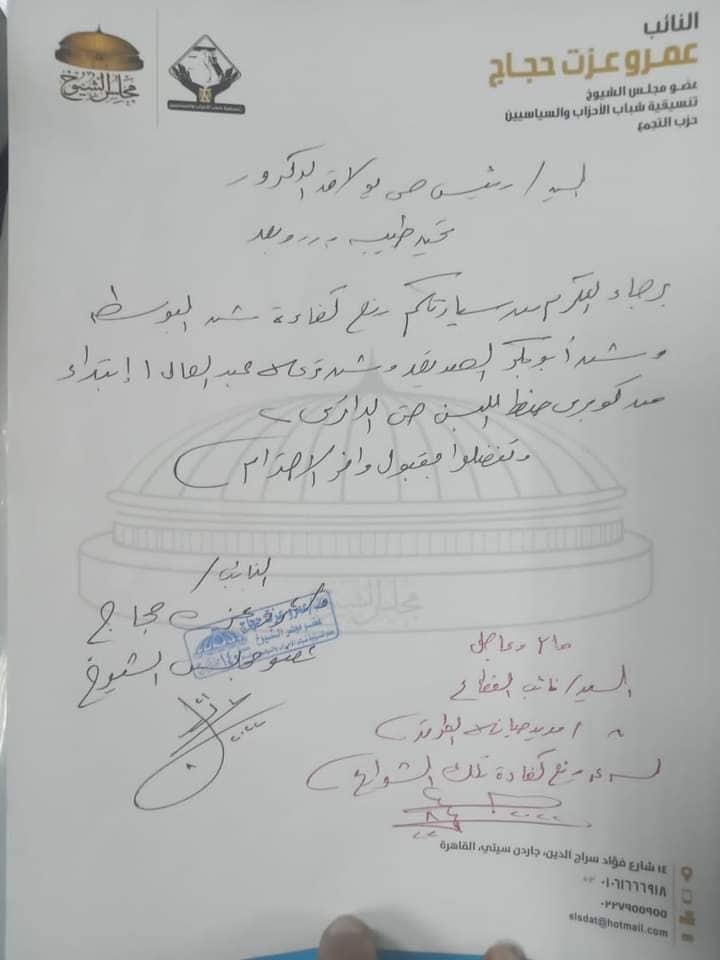 النائب
عمرو عزت حجاج
عضو مجلس الشيوخ
تنسيقية شباب الأحزاب والسياسيين
حزب التجمع
مجلس الشيوخ
تنسيقية شباب الأحزاب والسياسيين
السيد / رئيس حي بولاق الدكرور
تحية طيبة ... وبعد
برجاء التكرم من سيادتكم رفع كفاءة ش البوسطة
وش أبو بكر الصديق وش ترعة عبد العال ١ إبتداء
من كوبري صفط اللبن حتى الدائري
وتفضلوا بقبول وافر الاحترام
النائب /
عمرو عزت حجاج
عضو مجلس الشيوخ
عضو مجلس الشيوخ
هام وعاجل
السيد / نائب القطاع
مدير صيانة الطرق
رفع كفاءة تلك الشوارع
١٤ شارع فؤاد سراج الدين، جاردن سيتي، القاهرة
٠١٠٦١٦٦٦٩١٨
٠٢٢٧٩٥٥٩٥٥
slsdat@hotmail.com